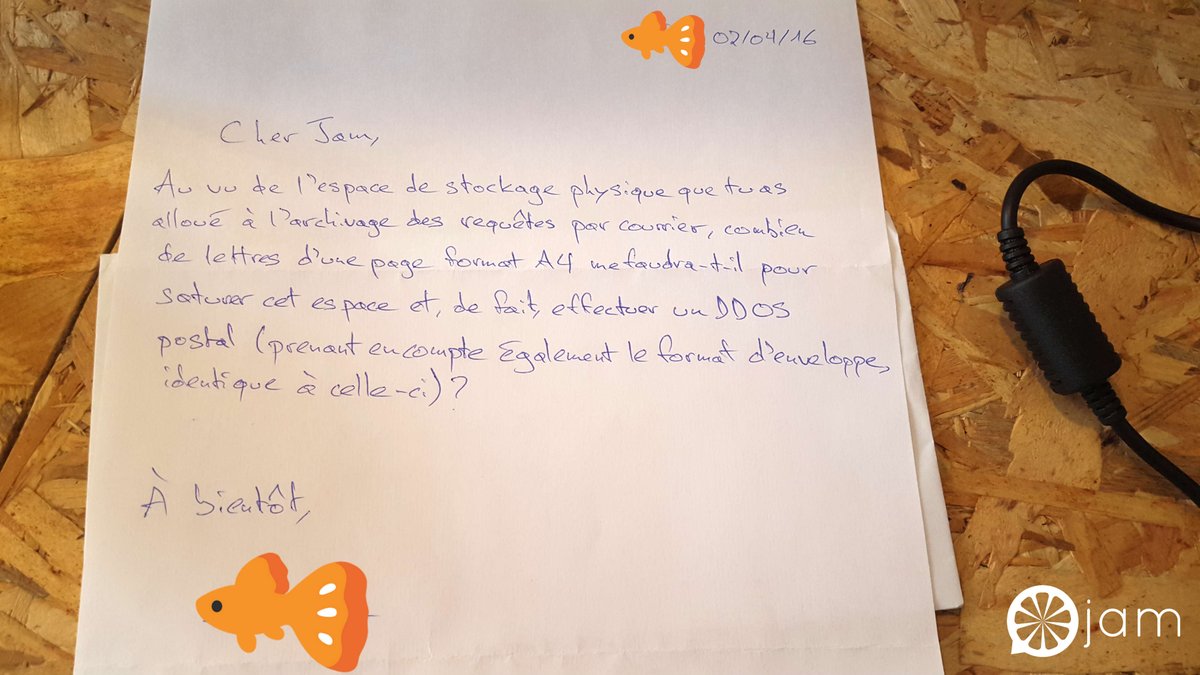 02/04/16
Cher Jam,
Au vu de l'espace de stockage physique que tu as
alloué à l'archivage des requêtes par courrier, combien
de lettres d'une page format A4 me faudra-t-il pour
saturer cet espace et, de fait, effectuer un DDOS
postal (prenant en compte également le format d'enveloppe,
identique à celle-ci) ?
À bientôt,
jam